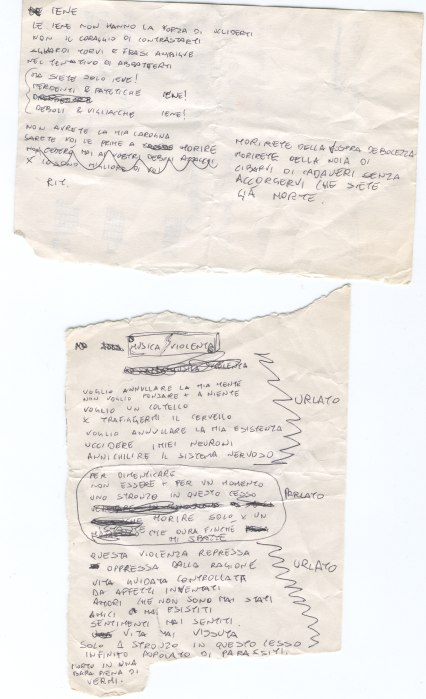 IENE
LE IENE NON HANNO LA FORZA DI UCCIDERTI
NON IL CORAGGIO DI CONTRASTARTI
SGUARDI TORVI E FRASI AMBIGUE
NEL TENTATIVO DI ABBATTERTI
MA SIETE SOLO IENE!
PERDENTI & PATETICHE IENE!
DEBOLI & VIGLIACCHE IENE!
NON AVRETE LA MIA CAROGNA
SARETE VOI LE PRIME A MORIRE
NON CEDERÒ MAI AI VOSTRI DEBOLI ATTACCHI
X IO SONO MIGLIORE DI VOI
RIT.
MORIRETE DELLA VOSTRA DEBOLEZZA
MORIRETE DELLA NOIA DI
CIBARVI DI CADAVERI SENZA
ACCORGERVI CHE SIETE
GIÀ MORTE.
MUSICA VIOLENTA
VIOLENTA
VOGLIO ANNULLARE LA MIA MENTE
NON VOGLIO PENSARE + A NIENTE
VOGLIO UN COLTELLO
X TRAFIGGERMI IL CERVELLO
VOGLIO ANNULLARE LA MIA ESISTENZA
UCCIDERE I MIEI NEURONI
ANNICHILIRE IL SISTEMA NERVOSO
URLATO
PER DIMENTICARE
NON ESSERE + PER UN MOMENTO
UNO STRONZO IN QUESTO CESSO
MORIRE SOLO X UN
CHE DURA FINCHÈ
MI SBATTE
PARLATO
QUESTA VIOLENZA REPRESSA
OPPRESSA DALLA RAGIONE
VITA GUIDATA CONTROLLATA
DA AFFETTI INVENTATI
AMORI CHE NON SONO MAI STATI
AMICI MAI ESISTITI
SENTIMENTI MAI SENTITI.
VITA MAI VISSUTA
SOLO 1 STRONZO IN QUESTO CESSO
INFINITO POPOLATO DI PARASSITI.
MORTO IN UNA
BARA PIENA DI
VERMI.
URLATO